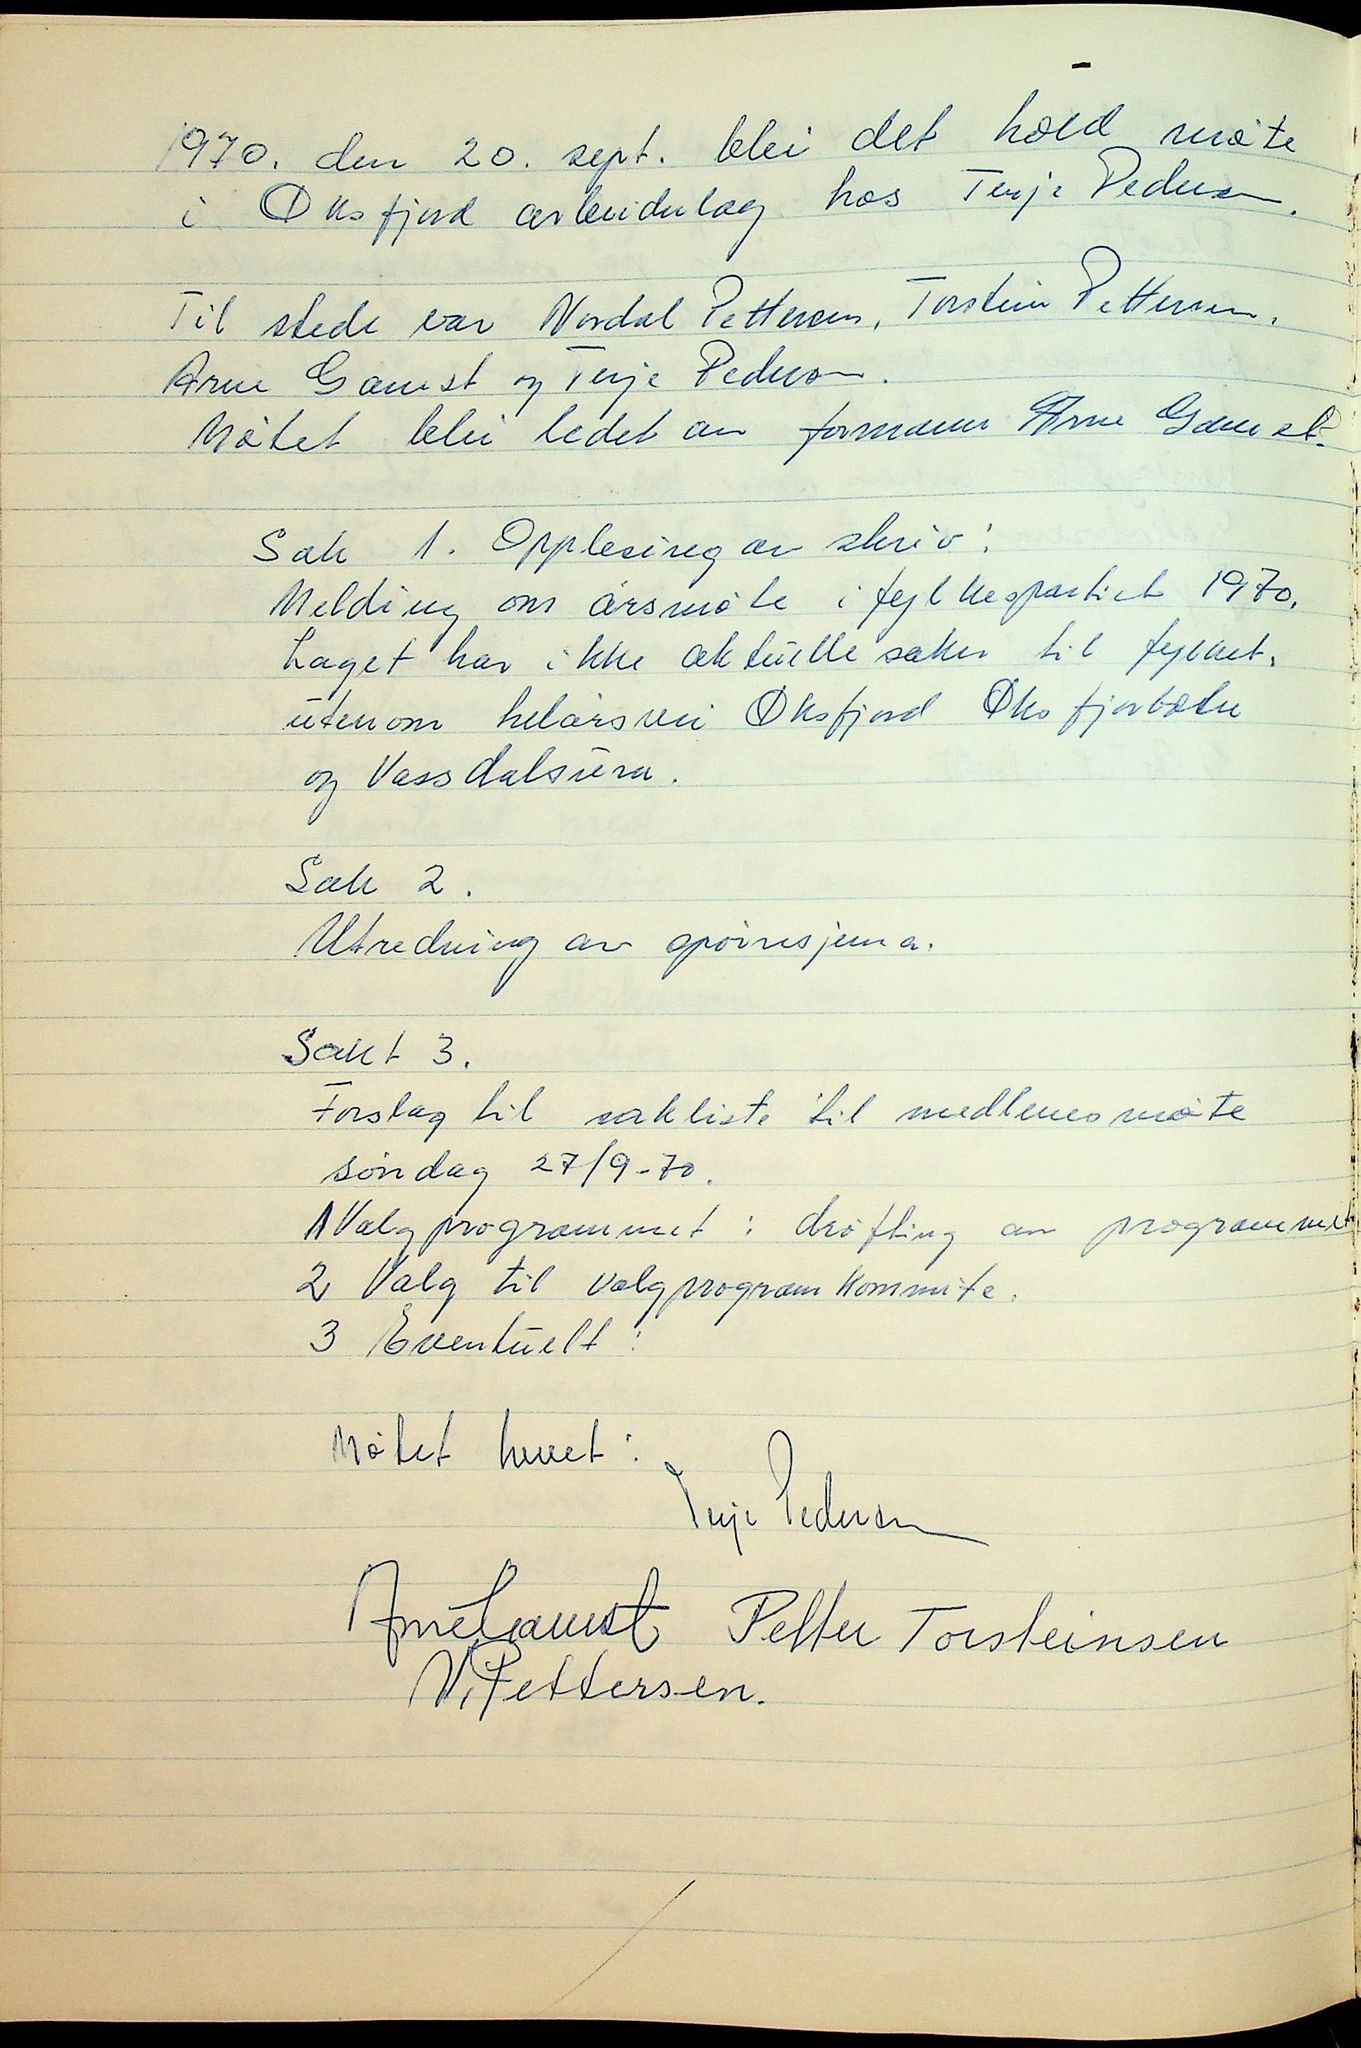 1970. den 20. sept. blei det hold møte
i Øksfjord arbeiderlag hos Terje Pedersen.
Til stede var Nordal Pettersen, Torstein Pettersen,
Arne Gamst og Terje Pedersen.
Møtet blei ledet av formann Arne Gamst.
Sak 1. Opplesing av skriv:
Melding om årsmøte i fylkespartiet 1970.
Laget har ikke aktuelle saker til fylket.
utenom helårsvei Øksfjord Øksfjorbotn
og Vassdalsura.
Sak 2.
Utredning av spørresjema.
Sakt 3.
Forslag til sakliste til medlemsmøte
søndag 27/9-70.
1 Valgprogrammet: drøfting av programmet
2 Valg til valgprogram kommite.
3 Eventuelt:
Møtet hevet:
Terje Pedersen
Arne Gamst Petter Torsteinsen
N. Pettersen.